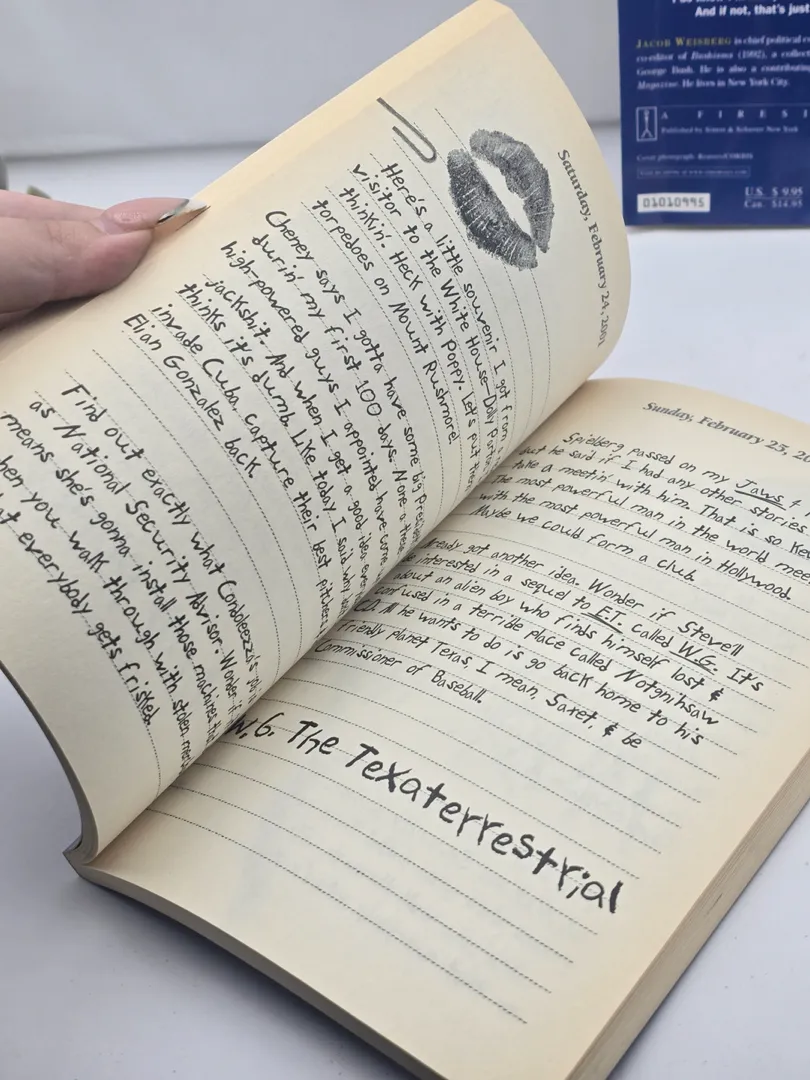 And if not, that's just
JACOB WEISBERG is chief political
co-editor of Bushisms (1992), a
George Bush. He is also a contributing
Magazine. He lives in New York City.
A FIRESI
Published by Simon & Schuster New York
01010995
U.S. $ 9.95
Can. $14.95
Saturday, February 24, 2001
Here's a little souvenir I got from a
visitor to the White House—Dolly Parton
thinkin'. Heck with Poppy. Let's put her
torpedoes on Mount Rushmore!
Cheney says I gotta have some big
durin' my first 100 days. None a these
high-powered guys I appointed have come
jackshit. And when I get a good idea
thinks it's dumb. Like today I said why
invade Cuba, capture their best pitchers
Elian Gonzalez back
Find out exactly what Condoleezza's
as National Security Advisor. Wonder if
means she's gonna install those machines
when you walk through with stolen
that everybody gets frisked.
Sunday, February 25,
Spielberg passed on my Jaws
but he said if I had any other stories
take a meetin' with him. That is so
The most powerful man in the world
with the most powerful man in Hollywood.
Maybe we could form a club.
already got another idea. Wonder if Stevell
be interested in a sequel to E.T. called W.G. It's
about an alien boy who finds himself lost &
confused in a terrible place called Notgnihsaw
C.D. All he wants to do is go back home to his
friendly planet Texas, I mean, Saxet, & be
Commissioner of Baseball.
W.G. The Texaterrestrial